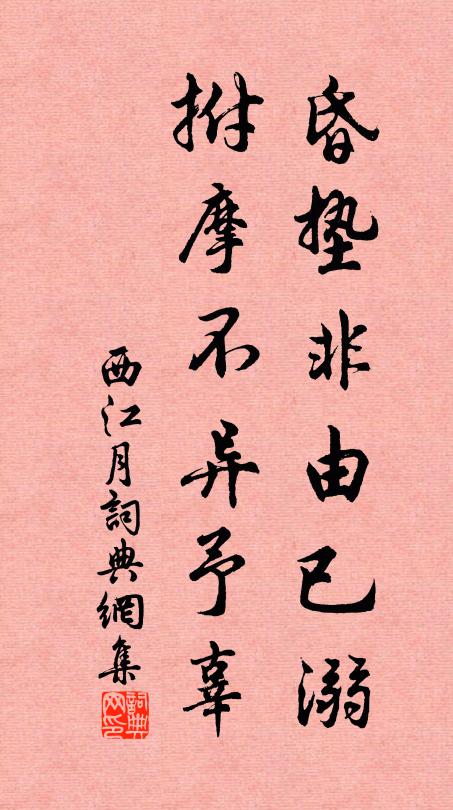 昏垫非由已溺
拊摩不异予辜
西江月詞典網集
詞典网印